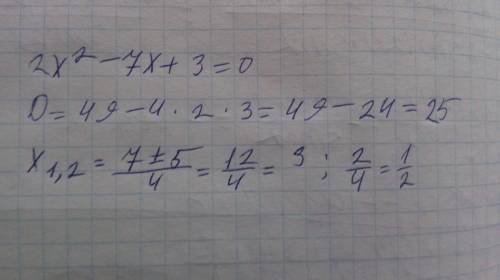 2x² - 7x + 3 = 0
D = 49 - 4 · 2 · 3 = 49 - 24 = 25
x₁,₂ = (7 ± 5)/4 = 12/4 = 3 ; 2/4 = 1/2